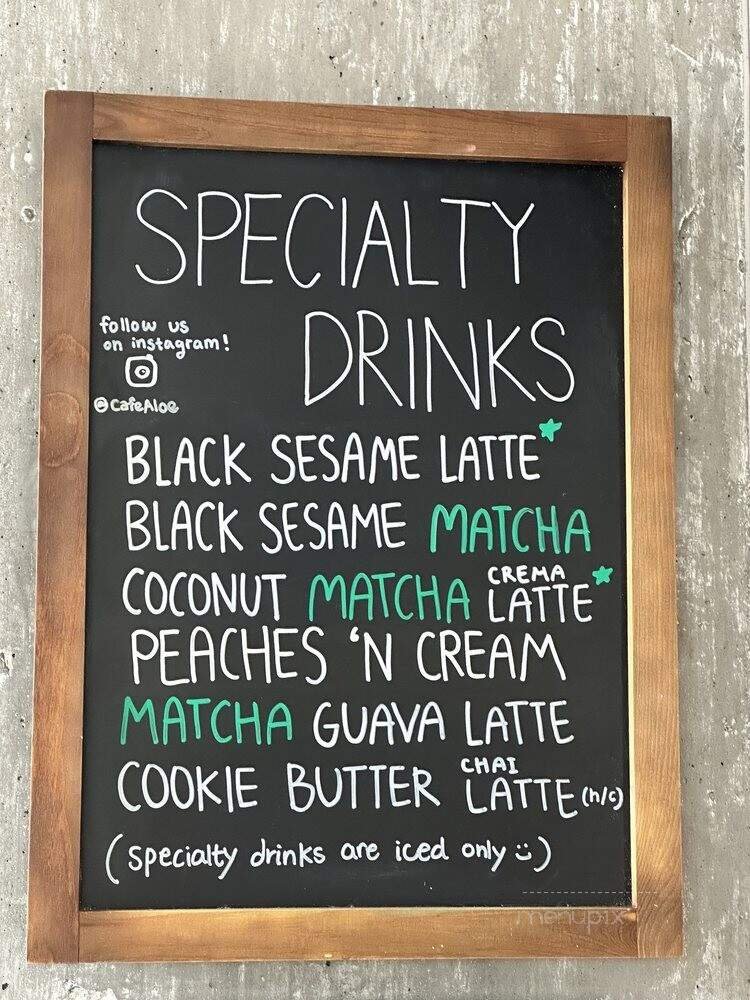 SPECIALTY
DRINKS
follow us
on instagram!
@CafeAloe
BLACK SESAME LATTE*
BLACK SESAME MATCHA
COCONUT MATCHA CREMA LATTE*
PEACHES 'N CREAM
MATCHA GUAVA LATTE
COOKIE BUTTER CHAI LATTE (h/c)
(specialty drinks are iced only :))
menupix